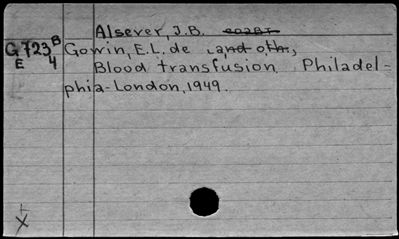 Alsever, J.B.
G723 B Gowin, E.L. de (and oth.,
E 4 Blood transfusion. Philadel-
phia-London, 1949.
X